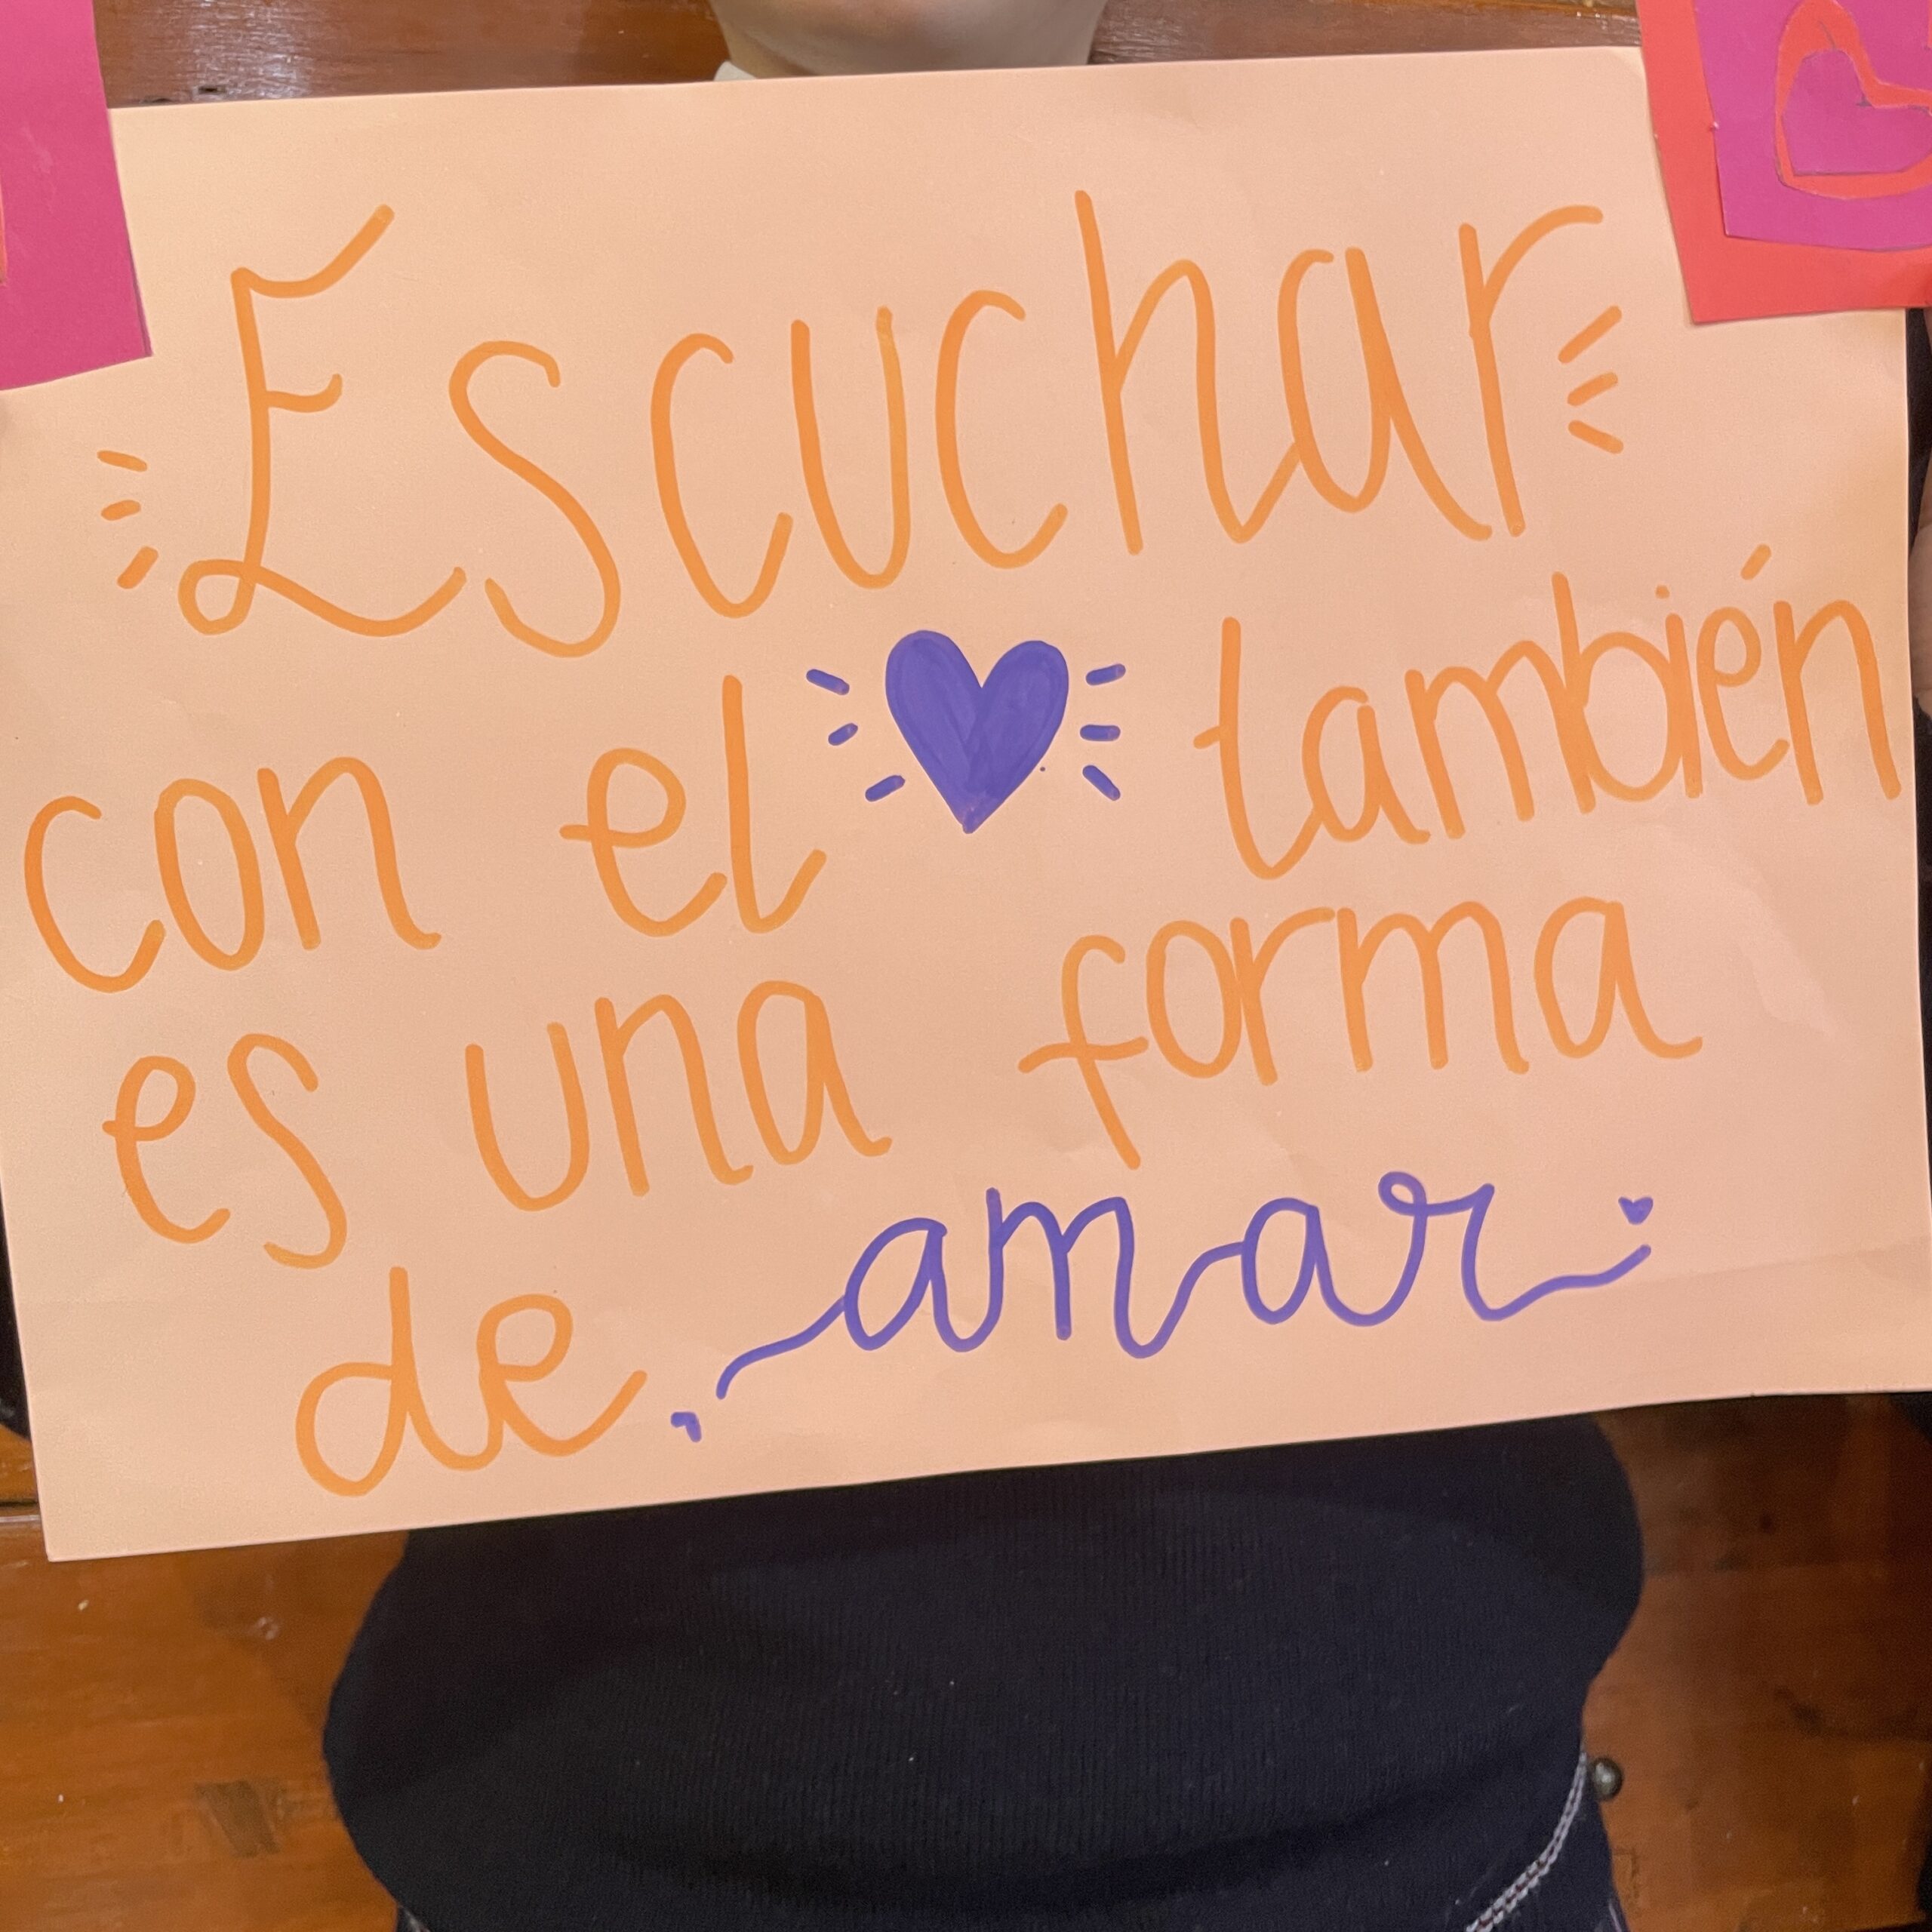 Escuchar
con el 💜 también
es una forma
de amar